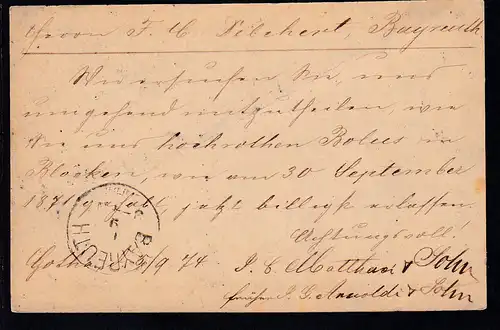 Herrn F. C. Bayreuth
Wir ersuchen Sie, uns
umgehend mitzutheilen, wie
Sie uns hochrothen Bolus in
Blöcken, wie am 30 September
1871 gehabt jetzt billigst erlassen.
Achtungsvoll!
Gotha 8/9 74 J. C. Matthaei & Sohn
früher J. G. Arnoldi & Sohn
BAYREUTH